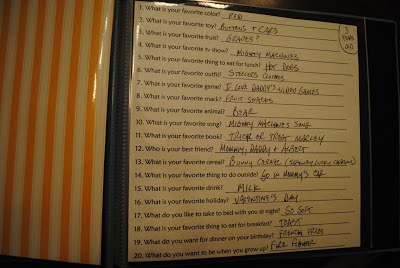 1. What is your favorite color? RED
2. What is your favorite toy? BUTTONS + CARS
3. What is your favorite fruit? GRAPES?
4. What is your favorite tv show? MIGHTY MACHINES
5. What is your favorite thing to eat for lunch? HOT DOGS
6. What is your favorite outfit? STEELERS CLOTHES
7. What is your favorite game? I LOVE DADDY'S VIDEO GAMES
8. What is your favorite snack? FRUIT SNACKS
9. What is your favorite animal? BEAR
10. What is your favorite song? MIGHTY MACHINES SONG
11. What is your favorite book? TRICK OR TREAT MARLEY
12. Who is your best friend? MOMMY, DADDY +
13. What is your favorite cereal? BUNNY CEREAL LUCKY
14. What is your favorite thing to do outside? GO IN MOMMY'S CAR
15. What is your favorite drink? MILK
16. What is your favorite holiday? VALENTINE'S DAY
17. What do you like to take to bed with you at night? SO SOFT
18. What is your favorite thing to eat for breakfast? TOAST
19. What do you want for dinner on your birthday? FRENCH FRIES
20. What do you want to be when you grow up? FIRE
3 YEARS OLD